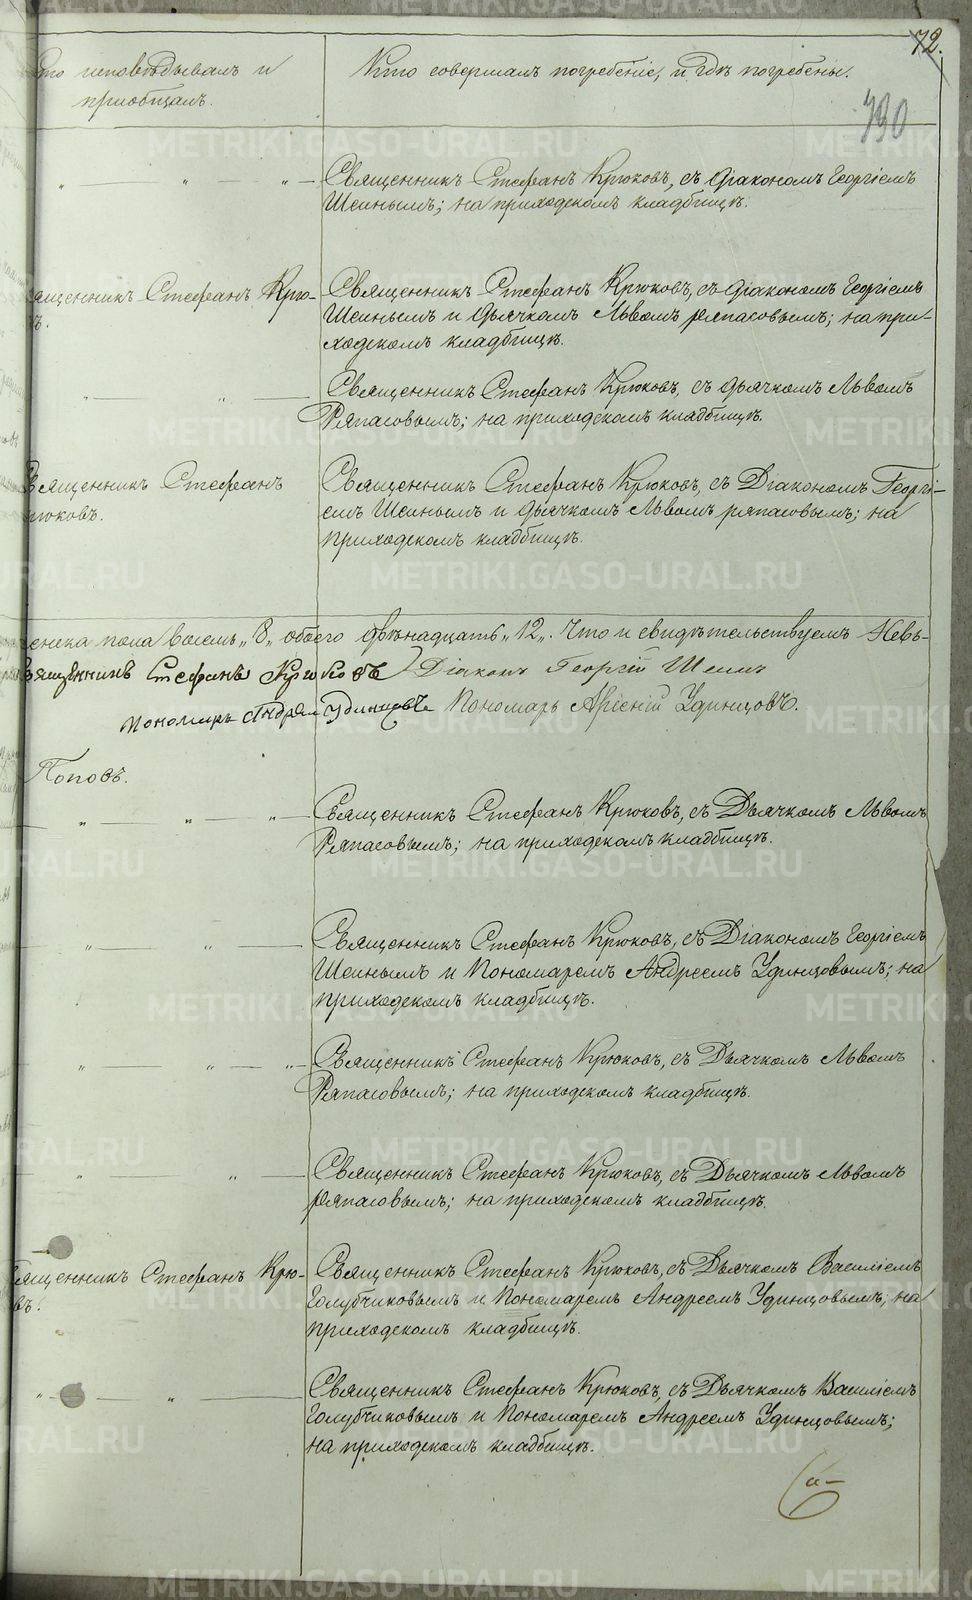 72.
то исповѣдывалъ и
пріобщалъ.
Кто совершалъ погребеніе, и гдѣ погребены.
730
Священникъ Стефанъ Крюковъ, съ Діакономъ Георгіемъ
Шеинымъ; на приходскомъ кладбищѣ.
ященникъ Стефанъ Крю-
въ.
Священникъ Стефанъ Крюковъ, съ діакономъ Георгіемъ
Шеинымъ и дьячкомъ Львомъ Ряпасовымъ; на при-
ходскомъ кладбищѣ.
Священникъ Стефанъ Крюковъ, съ дьячкомъ Львомъ
Ряпасовымъ; на приходскомъ кладбищѣ.
Священникъ Стефанъ
рюковъ.
Священникъ Стефанъ Крюковъ, съ Діакономъ Георгі-
емъ Шеинымъ и дьячкомъ Львомъ Ряпасовымъ; на
приходскомъ кладбищѣ.
енска пола восемь „8„ обоего двѣнадцать „12„. Что и свидѣтельствуемъ Невь-
Священникъ Стефанъ Крюковъ Діаконъ Георгій Шеинъ
Пономарь Андрей Удинцовъ Пономарь Арсеній Удинцовъ.
Поповъ.
Священникъ Стефанъ Крюковъ, съ Дьячкомъ Львомъ
Ряпасовымъ; на приходскомъ кладбищѣ.
Священникъ Стефанъ Крюковъ, съ Діакономъ Георгіемъ
Шеинымъ и Пономаремъ Андреемъ Удинцовымъ; на
приходскомъ кладбищѣ.
Священникъ Стефанъ Крюковъ, съ Дьячкомъ Львомъ
Ряпасовымъ; на приходскомъ кладбищѣ.
Священникъ Стефанъ Крюковъ, съ Дьячкомъ Львомъ
Ряпасовымъ; на приходскомъ кладбищѣ.
ященникъ Стефанъ Крю-
въ.
Священникъ Стефанъ Крюковъ, съ Дьячкомъ Василіемъ
Голубчиковымъ и Пономаремъ Андреемъ Удинцовымъ; на
приходскомъ кладбищѣ.
Священникъ Стефанъ Крюковъ, съ Дьячкомъ Василіемъ
Голубчиковымъ и Пономаремъ Андреемъ Удинцовымъ;
на приходскомъ кладбищѣ.
METRIKI.GASO-URAL.RU